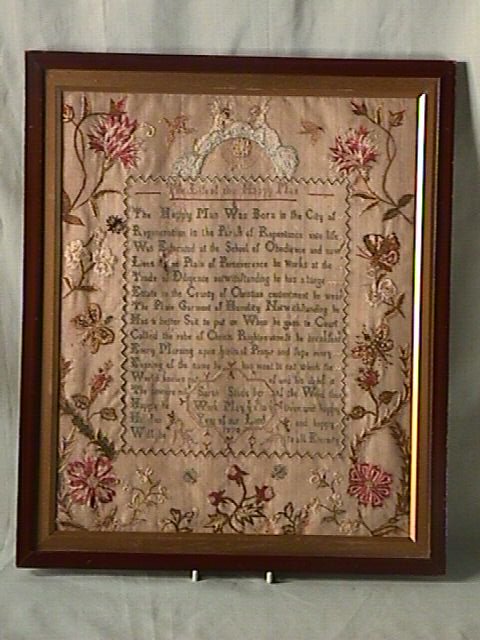 The Life of the Happy Man
The Happy Man Was Born in the City of
Regeneration in the Parish of Repentance unto life
Was Educated at the School of Obedience and now
Lives in Plain of Perseverance he Works at the
Trade of Diligence notwithstanding he has a large
Estate in the County of Christian contentment he wears
The Plain Garment of Humility Notwithstanding he
Has a better Suit to put on When he goes to Court
Called the robe of Christs Righteousness he breakfast
Every Morning upon Spiritual Prayer and Sups every
Evening of the same he has meat to eat which the
World knows not of and his
The Word thus
Happy he lives and happy
and happy
to all Eternity
Sarah
Work May
Year of our Lord